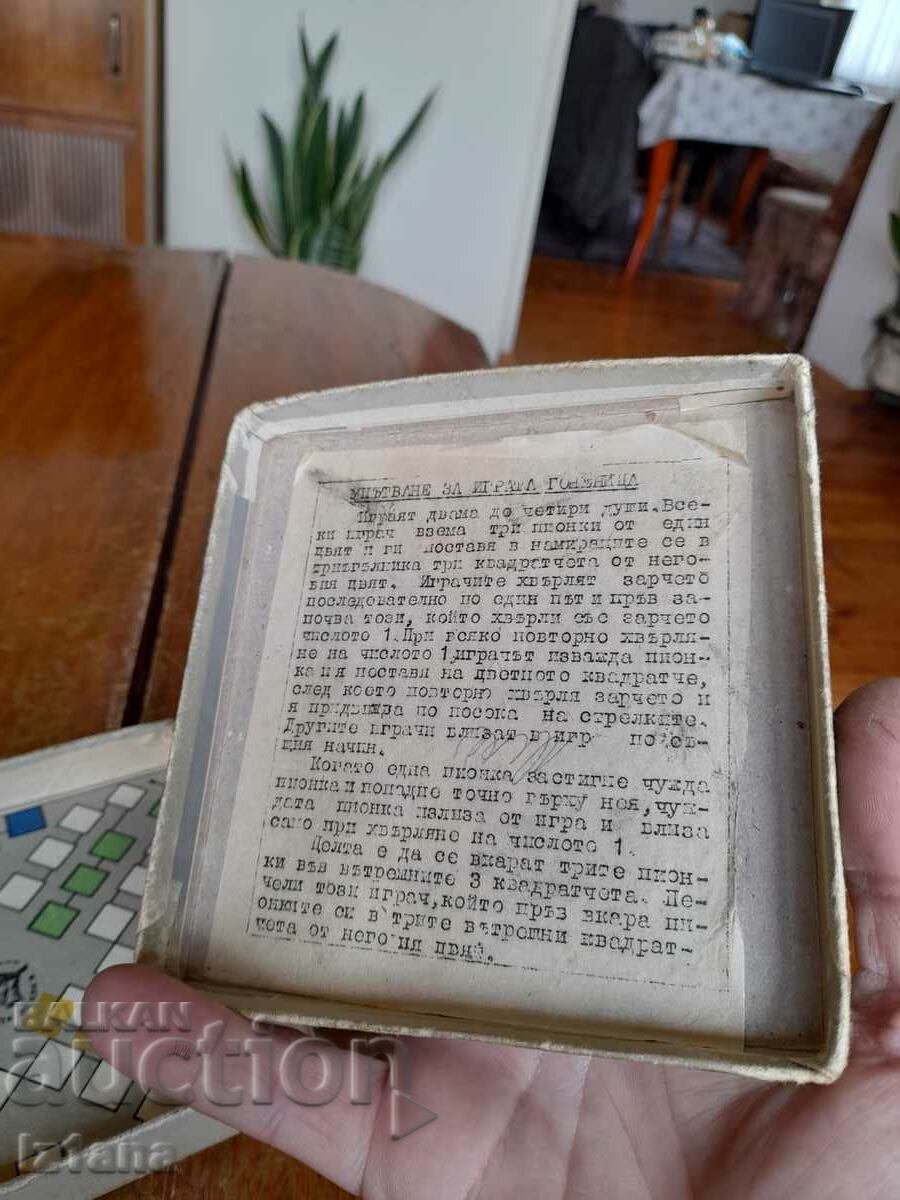 УПЪТВАНЕ ЗА ИГРАТА ГОНЕНИЦА
Играят двама до четири души. Все-
ки играч взема три пионки от един
цвят и ги поставя в намиращите се в
триъгълника три квадратчета от него-
вия цвят. Играчите хвърлят зарчето
последователно по един път и пръв за-
почва този, който хвърли със зарчето
числото 1. При всяко повторно хвърля-
не на числото 1, играчът изважда пион-
ка и я поставя на цветното квадратче,
след което повторно хвърля зарчето и
я придвижва по посока на стрелките.
Другите играчи влизат в игр по съ-
щия начин.
Когато една пионка застигне чужда
пионка и попадне точно върху нея, чуж-
дата пионка излиза от игра и влиза
само при хвърляне на числото 1.
Целта е да се вкарат трите пион-
ки във вътрешните 3 квадратчета. Пе-
чели този играч, който пръв вкара пи-
онките си в трите вътрешни квадрат-
чета от неговия цвят.
BALKAN
auction
Iztana